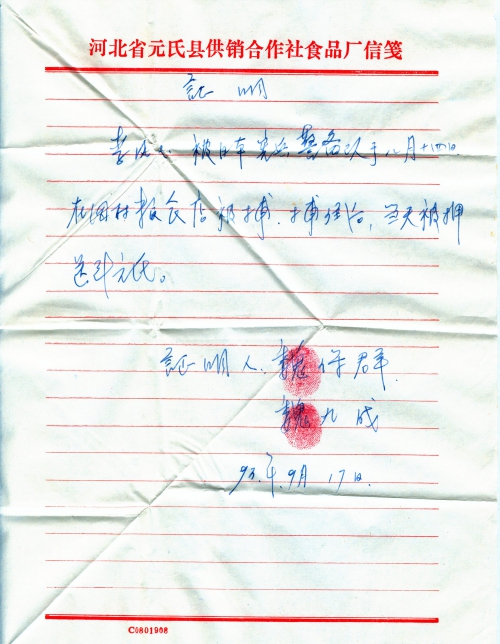 河北省元氏县供销合作社食品厂信笺
証明
李 被日本宪兵警备队于八月十四日
在 村 饭店被捕. 捕 后, 当天被押
送到元氏。
証明人. 魏保群.
魏九成
93.年.9月17日.
C0801908